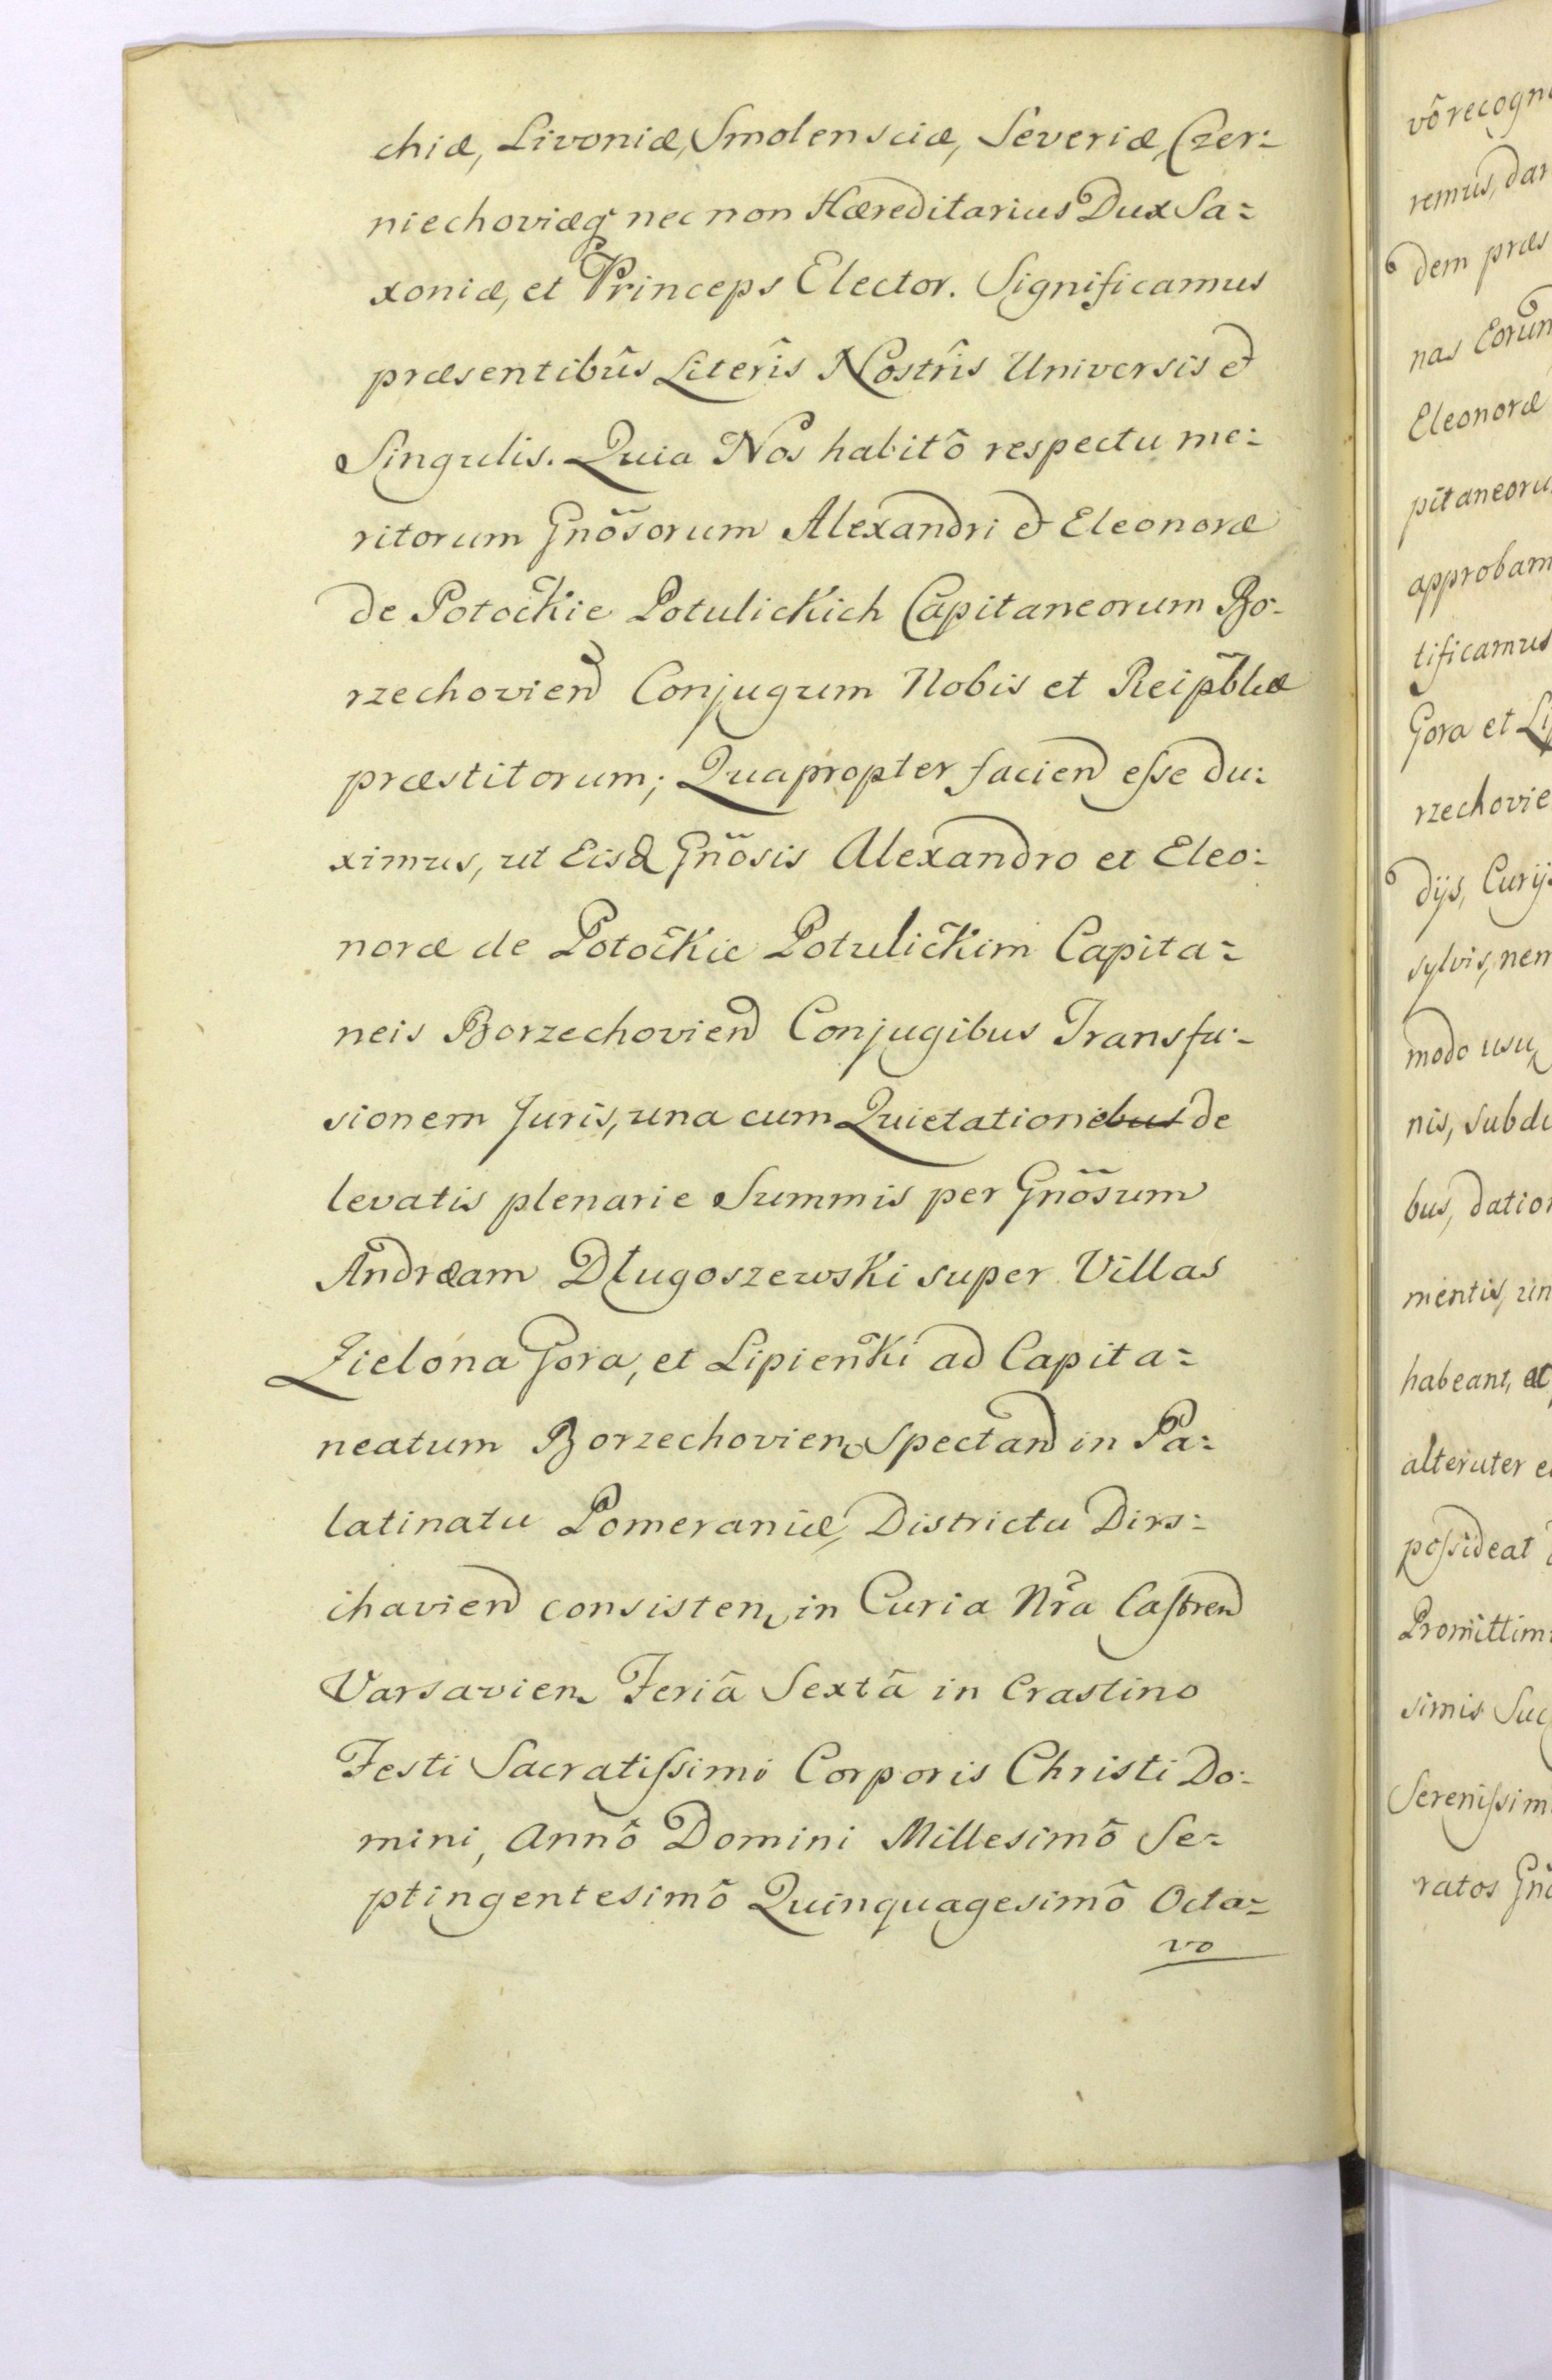 chiæ, Livoniæ, Smolensciæ, Severiæ, Czer:
niechoviæq nec non Hæreditarius Dux Sa=
xoniæ, et Princeps Elector. Significamus
præsentibûs Literîs Nostrîs Universis et
Singulis. Quia Nos habitô respectu me:
ritorum Gnõsorum Alexandri et Eleonoræ
de Potockie Potulickich Capitaneorum Bo-
rzechovien Conjugum Nobis et Reipblicæ
præstitorum; Quapropter facien eſse du:
ximus, ut Eisd Gnõsis Alexandro et Eleo:
noræ de Potockie Potulickim Capita=
neis Borzechovien Conjugibus Transfu-
sionem Juris, una cum Quietationebus de
levatis plenarie Summis per Gnõsum
Andræam Długoszewski super Villas
Zielona Gora, et Lipienki ad Capita=
neatum Borzechovien Spectan in Pa:
latinatu Pomeraniæ, Districtu Dirs:
chavien consisten, in Curia Nrã Caſtren
Varsavien Feriâ Sextâ in Crastino
Festi Sacratiſsimi Corporis Christi Do:
mini, Annô Domini Millesimô Se=
ptingentesimô Quinquagesimô Octa=
vo
vô recogn
remus, dar
dem præs
nas Eorun
Eleonoræ
pitaneoru
approbam
tificamus
Gora et Lip
rzechovie
dijs, Curij
sylvis, nem
modo usu
nis, subdi
bus, dation
mentis, un
habeant, et
alteruter e
poſsideat
Promittim
simis Suc
Sereniſsim
ratos Gnõ